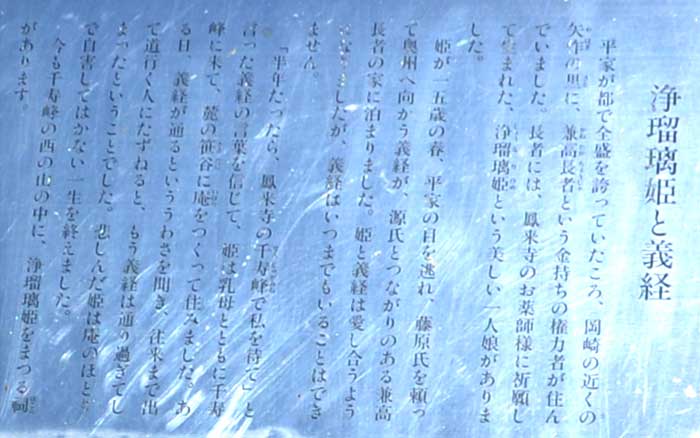 浄瑠璃姫と義経
平家が都で全盛を誇っていたころ、岡崎の近くの
矢作の里に、兼高長者という金持ちの権力者が住ん
でいました。長者には、鳳来寺のお薬師様に祈願し
て生まれた、浄瑠璃姫という美しい一人娘がありま
した。
姫が一五歳の春、平家の目を逃れ、藤原氏を頼っ
て奥州へ向かう義経が、源氏とつながりのある兼高
長者の家に泊まりました。姫と義経は愛し合うよう
になりましたが、義経はいつまでもいることはでき
ません。
「半年たったら、鳳来寺の千寿峰で私を待て」と
言った義経の言葉を信じて、姫は乳母とともに千寿
峰に来て、麓の笹谷に庵をつくって住みました。あ
る日、義経が通るといううわさを聞き、往来まで出
て道行く人にたずねると、もう義経は通り過ぎてし
まったということでした。悲しんだ姫は庵のほとり
で自害してはかない一生を終えました。
今も千寿峰の西の山の中に、浄瑠璃姫をまつる祠
があります。